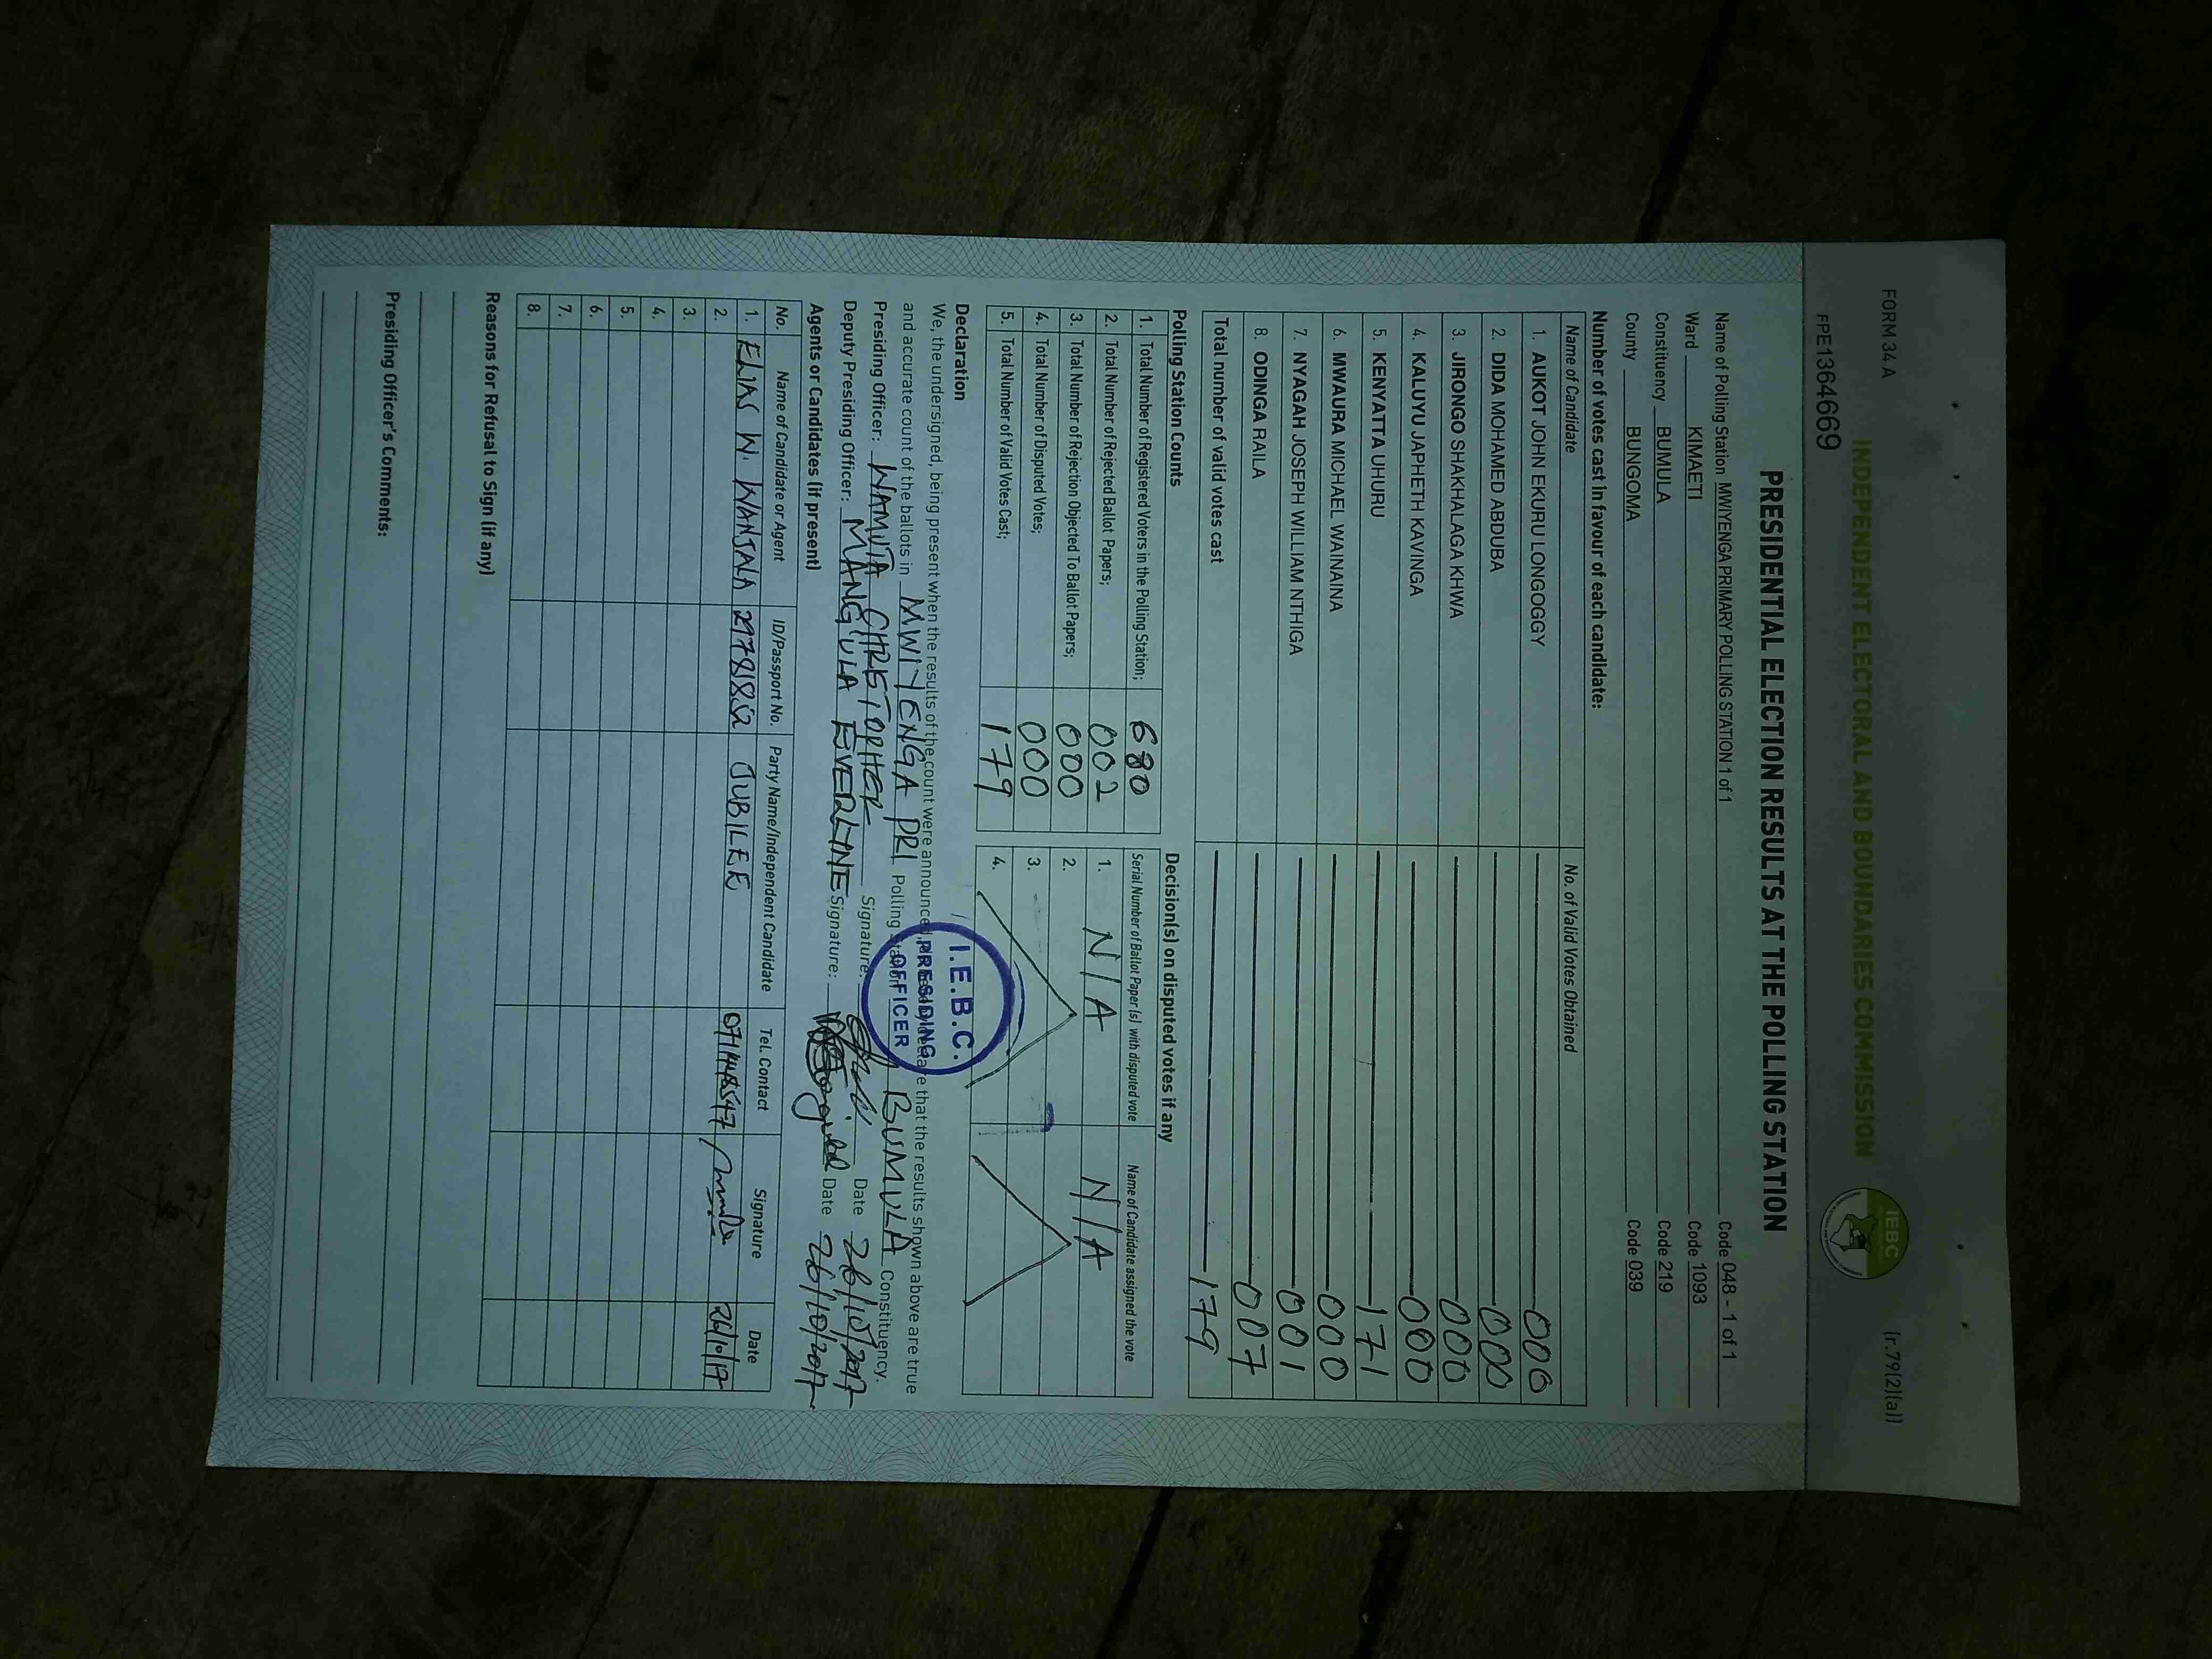 FORM 34 A
(r.79(2)(a))
INDEPENDENT ELECTORAL AND BOUNDARIES COMMISSION
IEBC
FPE1364669
PRESIDENTIAL ELECTION RESULTS AT THE POLLING STATION
Name of Polling Station MWIYENGA PRIMARY POLLING STATION 1 of 1 Code 048 - 1 of 1
Ward KIMAETI Code 1093
Constituency BUMULA Code 219
County BUNGOMA Code 039
Number of votes cast in favour of each candidate:
Name of Candidate No. of Valid Votes Obtained
1. AUKOT JOHN EKURU LONGOGGY 000
2. DIDA MOHAMED ABDUBA 000
3. JIRONGO SHAKHALAGA KHWA 000
4. KALUYU JAPHETH KAVINGA 000
5. KENYATTA UHURU 171
6. MWAURA MICHAEL WAINAINA 000
7. NYAGAH JOSEPH WILLIAM NTHIGA 001
8. ODINGA RAILA 007
Total number of valid votes cast 179
Polling Station Counts
1. Total Number of Registered Voters in the Polling Station; 680
2. Total Number of Rejected Ballot Papers; 002
3. Total Number of Rejection Objected To Ballot Papers; 000
4. Total Number of Disputed Votes; 000
5. Total Number of Valid Votes Cast; 179
Decision(s) on disputed votes if any
Serial Number of Ballot Paper(s) with disputed vote Name of Candidate assigned the vote
1. N/A N/A
2.
3.
4.
Declaration
We, the undersigned, being present when the results of the count were announced, that the results shown above are true
and accurate count of the ballots in MWIYENGA PRI Polling Station BUMULA Constituency.
Presiding Officer: WAMUTA CHRISTOPHER Signature: Date 26/10/2017
Deputy Presiding Officer: MANG'ULA EVERLINE Signature: Date 26/10/2017
I.E.B.C.
PRESIDING
OFFICER
Agents or Candidates (if present)
No. Name of Candidate or Agent ID/Passport No. Party Name/Independent Candidate Tel. Contact Signature Date
1. ELIAS W. WANJALA JUBILEE 26/10/17
2.
3.
4.
5.
6.
7.
8.
Reasons for Refusal to Sign (if any)
Presiding Officer's Comments: